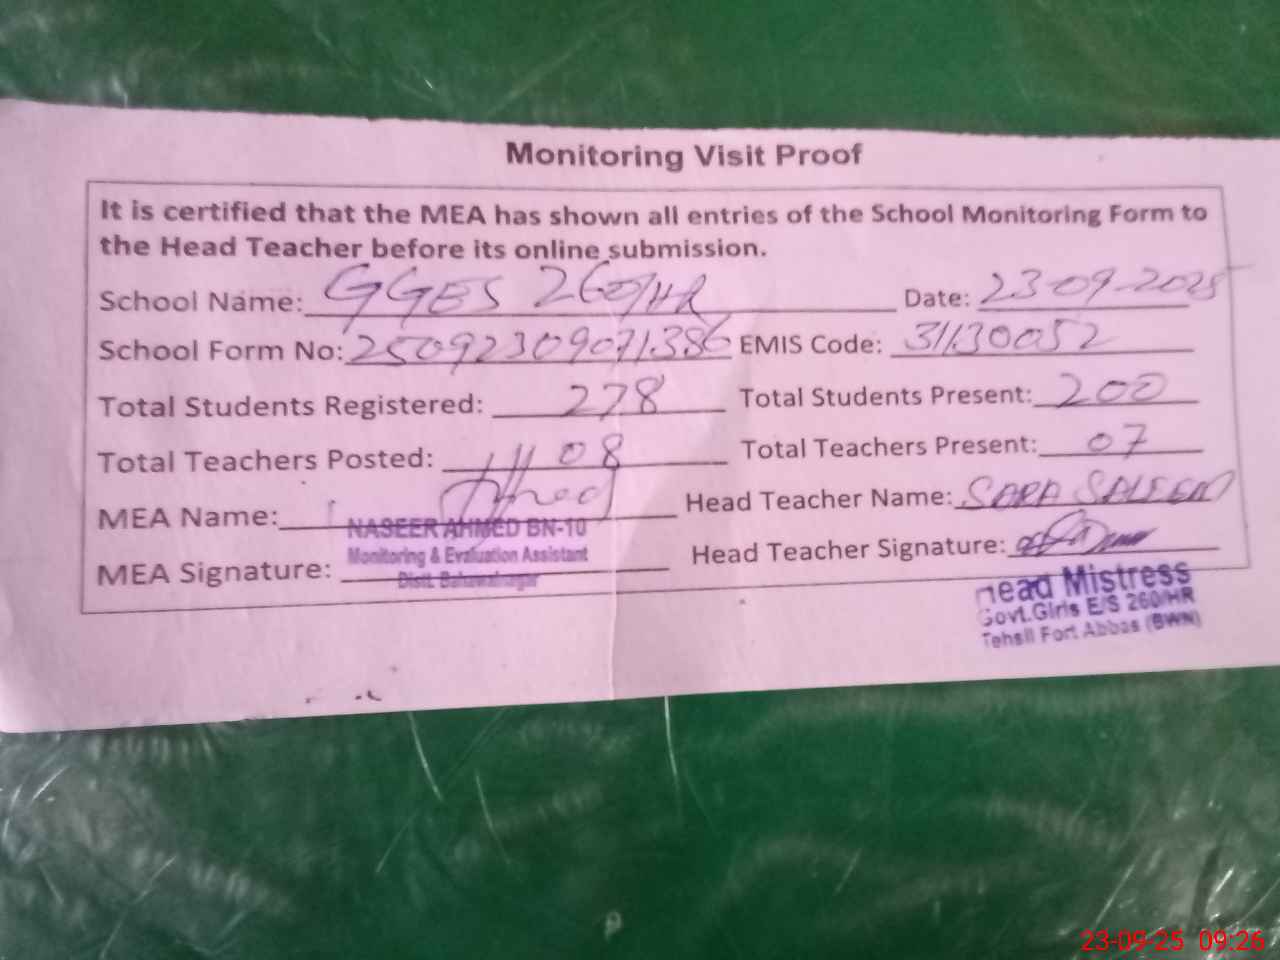 Monitoring Visit Proof
It is certified that the MEA has shown all entries of the School Monitoring Form to
the Head Teacher before its online submission.
School Name: GGES 260/HR Date: 23-09-2025
School Form No: 25092309071386 EMIS Code: 31130052
Total Students Registered: 278 Total Students Present: 200
Total Teachers Posted: 08 Total Teachers Present: 07
MEA Name: Head Teacher Name: SARA SALEEM
NASEER AHMED BN-10
Monitoring & Evaluation Assistant
Distt. Bahawalnagar
MEA Signature: Head Teacher Signature:
Head Mistress
Govt.Girls E/S 260/HR
Tehsil Fort Abbas (BWN)
23-09-25 09:26